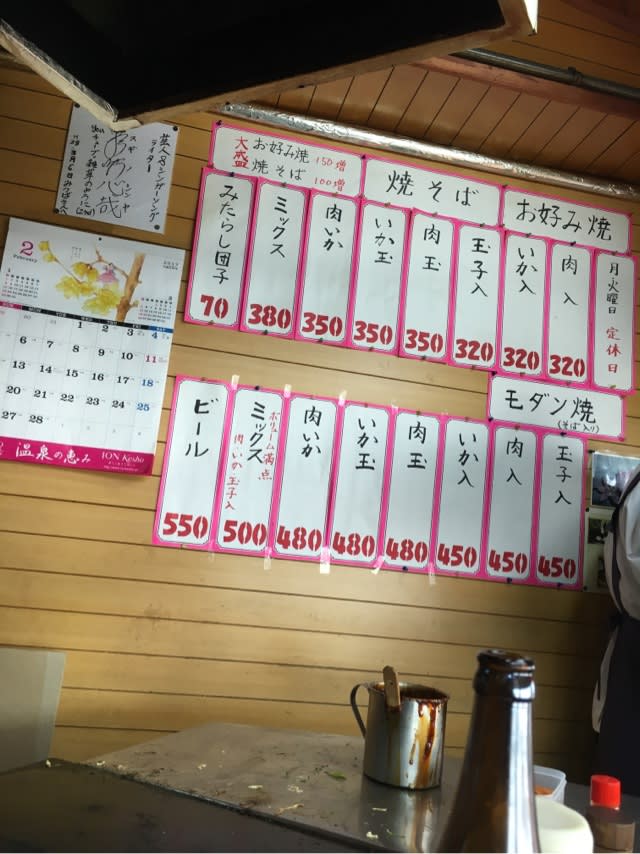 大盛
お好み焼 150増
焼そば 100増
焼そば
お好み焼
月火曜日 定休日
肉入 320
いか入 320
玉子入 320
肉玉 350
いか玉 350
肉いか 350
ミックス 380
みたらし団子 70
モダン焼
(そば入り)
玉子入 450
肉入 450
いか入 450
肉玉 480
いか玉 480
肉いか 480
ミックス 500
ボリューム満点
肉、いか、玉子入
ビール 550
芸人&シンガーソング
ライター
2
February
2017
1 2 3 4
6 7 8 9 10 11
13 14 15 16 17 18
20 21 22 23 24 25
27 28
温泉の恵み
ION Kesho